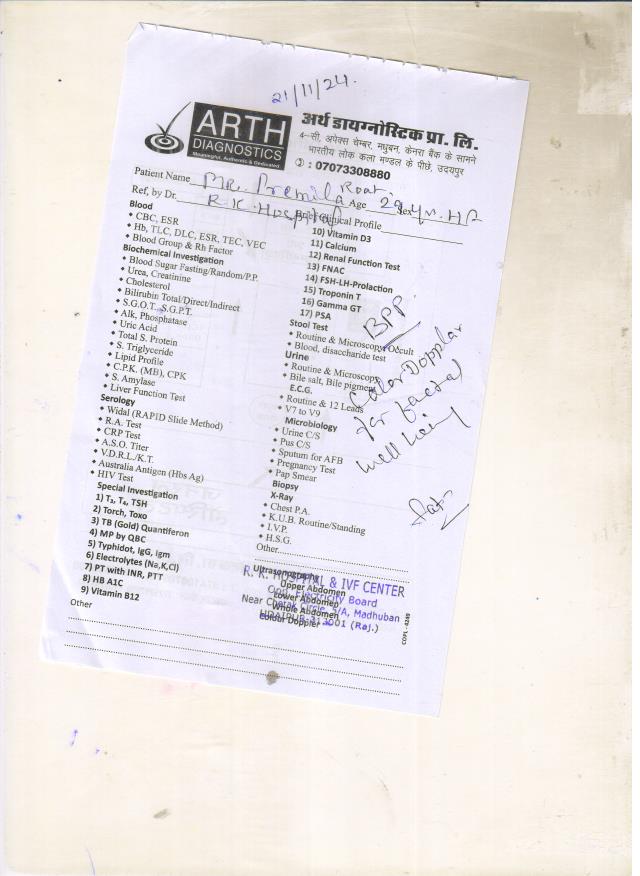 21/11/24.
ARTH
DIAGNOSTICS
Meaningful, Authentic & Dedicated
अर्थ डायग्नोस्टिक प्रा. लि.
4-सी, अपेक्स चेम्बर, मधुबन, केनरा बैंक के सामने
भारतीय लोक कला मण्डल के पीछे, उदयपुर
: 07073308880
Patient Name MR. Premila Roat Age 29 Sex
Ref, by Dr. R.K. Hospital Brief Clinical Profile
Blood
CBC, ESR
Hb, TLC, DLC, ESR, TEC, VEC
Blood Group & Rh Factor
Biochemical Investigation
Blood Sugar Fasting/Random/P.P.
Urea, Creatinine
Cholesterol
Bilirubin Total/Direct/Indirect
S.G.O.T., S.G.P.T.
Alk, Phosphatase
Uric Acid
Total S. Protein
S. Triglyceride
Lipid Profile
C.P.K. (MB), CPK
S. Amylase
Liver Function Test
Serology
Widal (RAPID Slide Method)
R.A. Test
CRP Test
A.S.O. Titer
V.D.R.L./K.T.
Australia Antigen (Hbs Ag)
HIV Test
Special Investigation
1) T₃, T₄, TSH
2) Torch, Toxo
3) TB (Gold) Quantiferon
4) MP by QBC
5) Typhidot, IgG, Igm
6) Electrolytes (Na,K,Cl)
7) PT with INR, PTT
8) HB A1C
9) Vitamin B12
Other
10) Vitamin D3
11) Calcium
12) Renal Function Test
13) FNAC
14) FSH-LH-Prolaction
15) Troponin T
16) Gamma GT
17) PSA
Stool Test
Routine & Microscopy, Occult
Blood, disaccharide test
Urine
Routine & Microscopy
Bile salt, Bile pigment
E.C.G.
Routine & 12 Leads
V7 to V9
Microbiology
Urine C/S
Pus C/S
Sputum for AFB
Pregnancy Test
Pap Smear
Biopsy
X-Ray
Chest P.A.
K.U.B. Routine/Standing
I.V.P.
H.S.G.
Other
Ultrasonography
Upper Abdomen
Lower Abdomen
Whole Abdomen
Colour Doppler
BPP
Color Dopplar
for faetal
well being
R. K. HOSPITAL & IVF CENTER
Opp. Electricity Board
Near Chetak Circle, 5/A, Madhuban
UDAIPUR-313001 (Raj.)
COPL-4249